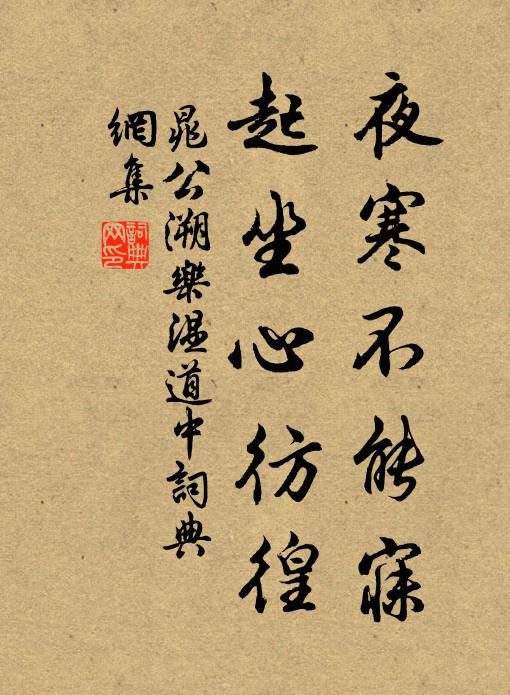 夜寒不能寐
起坐心彷徨
晁公溯樂温道中詞典
網集
詞典
网印